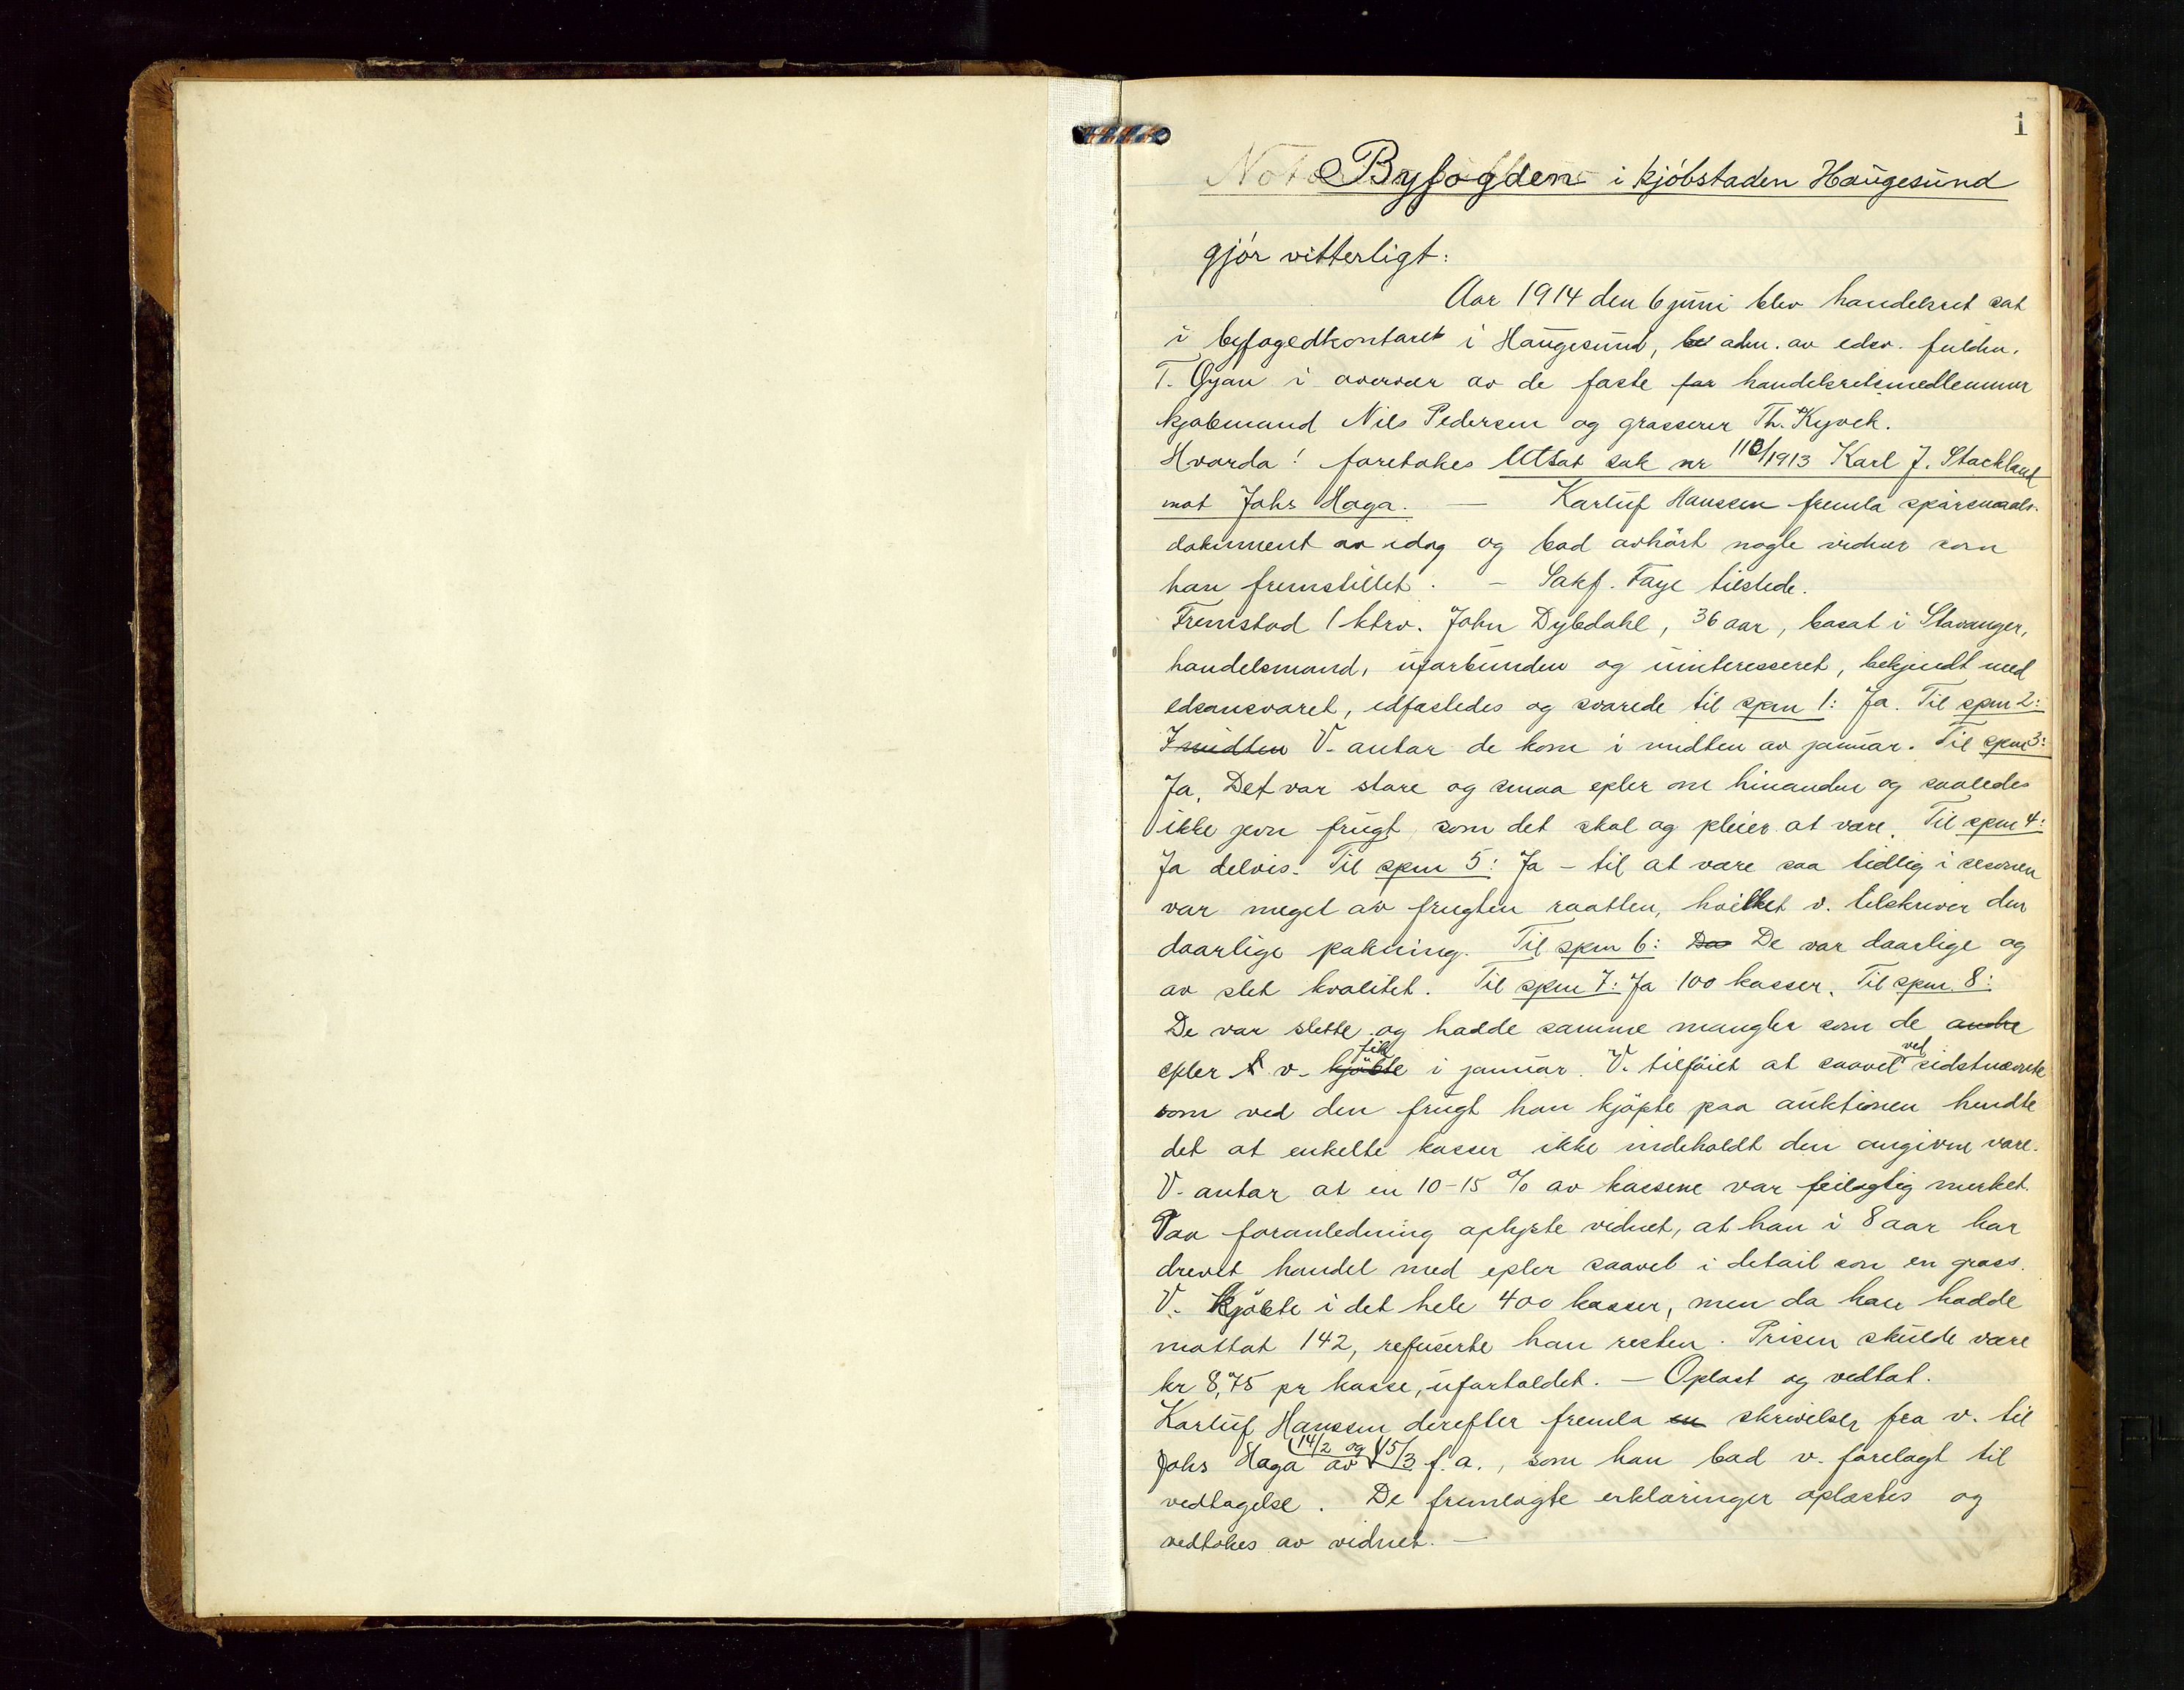 1
Byfogden i kjøbstaden Haugesund
gjør vitterligt:
Aar 1914 den 6 juni blev handelsret sat
i byfogedkontoret i Haugesund, adm. av edsv. fuldm.
T. Gjan i overvær av de faste for handelsretsmedlemmer
kjøbmand Nils Pedersen og grosserer Th. Kyvik.
Hvorda! foretokes Utsat sak nr 110/1913 Karl J. Stackland
mot Johs Haga. — Karluf Hanssen fremla spørsmaals-
dokument av idag og bad avhørt nogle vidner som
han fremstillet. – Sakf. Faye tilstede.
Fremstod 1 ktrv. John Dybdahl, 36 aar, bosat i Stavanger,
handelsmand, uforbunden og uinteresseret, bekjendt med
edsansvaret, edfæstedes og svarede til spm 1: Ja. Til spm 2:
I midten V. antar de kom i midten av januar. Til spm 3:
Ja, Det var store og smaa epler om hinanden og saaledes
ikke jevn frugt, som det skal og pleier at være. Til spm 4:
Ja delvis. Til spm 5: Ja – til at være saa tidlig i sesonen
var meget av frugten raatten, hvilket v. tilskriver den
daarlige pakning. Til spm 6: De var daarlige og
av slet kvalitet. Til spm 7: Ja 100 kasser. Til spm. 8:
De var slette og hadde samme mangler som de andre
epler v. kjøbte fik i januar. V. tilføiet at saavel ved sidstnævnte
som ved den frugt han kjøpte paa auktionen hendte
det at enkelte kasser ikke indeholdt den angivne vare.
V. antar at en 10-15 % av kassene var feilagtig merket.
Paa foranledning oplyste vidnet, at han i 8 aar har
drevet handel med epler saavel i detail som en gross.
V. kjøbte i det hele 400 kasser, men da han hadde
mottat 142, refuserte han resten. Prisen skulde være
kr 8,75 pr kasse, ufortoldet. — Oplæst og vedtat.
Karluf Hanssen derefter fremla en skrivelser fra v. til
Johs Haga av 14/2 og 15/3 f. a., som han bad v. forelagt til
vedtagelse. De fremlagte erklæringer oplæstes og
vedtokes av vidnet. —